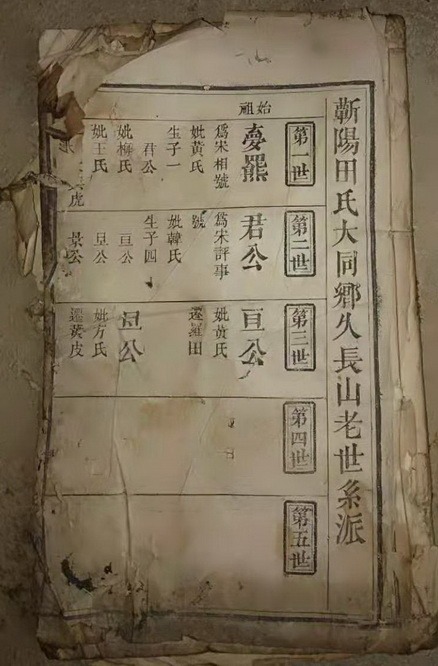 蘄陽田氏大同鄉久長山老世系派
第一世
始祖
夢羆
爲宋相號
妣黃氏
生子一
君公
妣 氏
妣王氏
虎
第二世
君公
爲宋評事
號
妣韓氏
生子四
亘公
旦公
景公
第三世
亘公
妣黃氏
遷羅田
旦公
妣方氏
遷黃皮
第四世
第五世